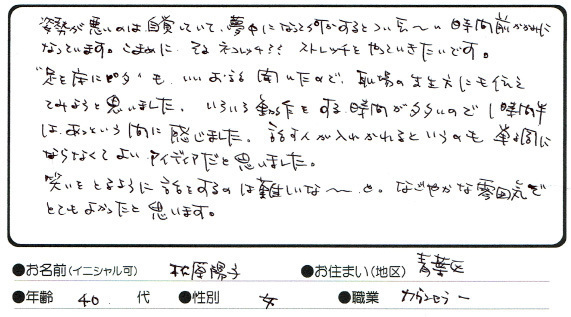 姿勢が悪いのは自覚していて、夢中になって何かするとつい長〜い時間前かがみに
なっています。こまめに ストレッチをやっていきたいです。
"足を床にピタ"も、いいお話を聞いたので、職場の先生方にも伝え
てみようと思いました。いろいろ動作をする時間が多いので1時間半
は、あっという間に感じました。話す人が入れかわるというのも、単調に
ならなくてよいアイディアだと思いました。
笑いをとるように話をするのは難しいな〜と。なごやかな雰囲気で
とてもよかったと思います。
●お名前(イニシャル可) 萩原陽子 ●お住まい(地区) 青葉区
●年齢 40. 代 ●性別 女 ●職業 カウンセラー